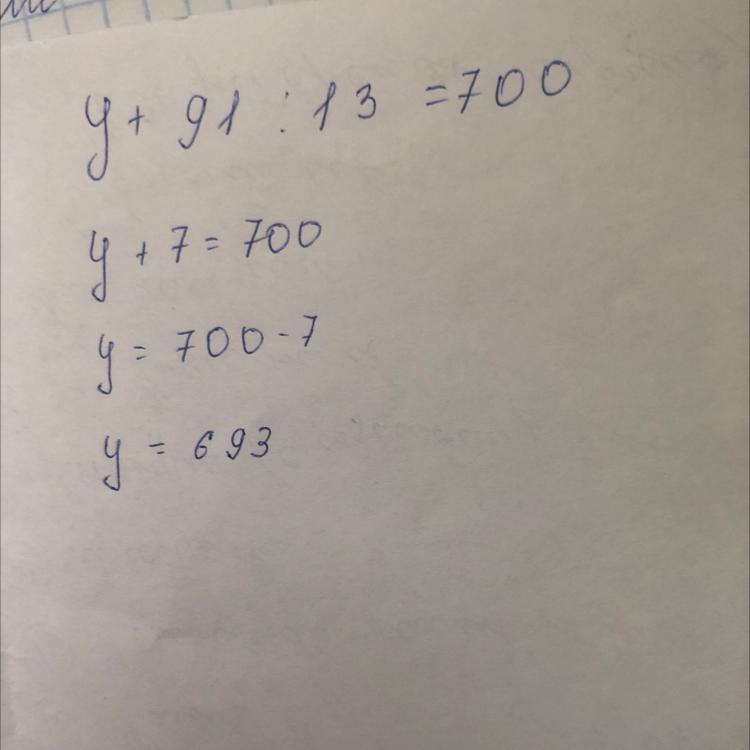 y + 91 : 13 = 700
y + 7 = 700
y = 700 - 7
y = 693